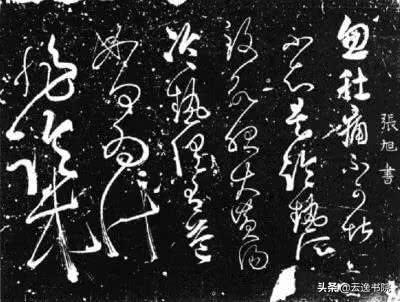 張旭書
忽肚痛不可堪
不知是冷熱所
致欲服大黃湯
冷熱俱有益
如何為計
头条 @云逸书院